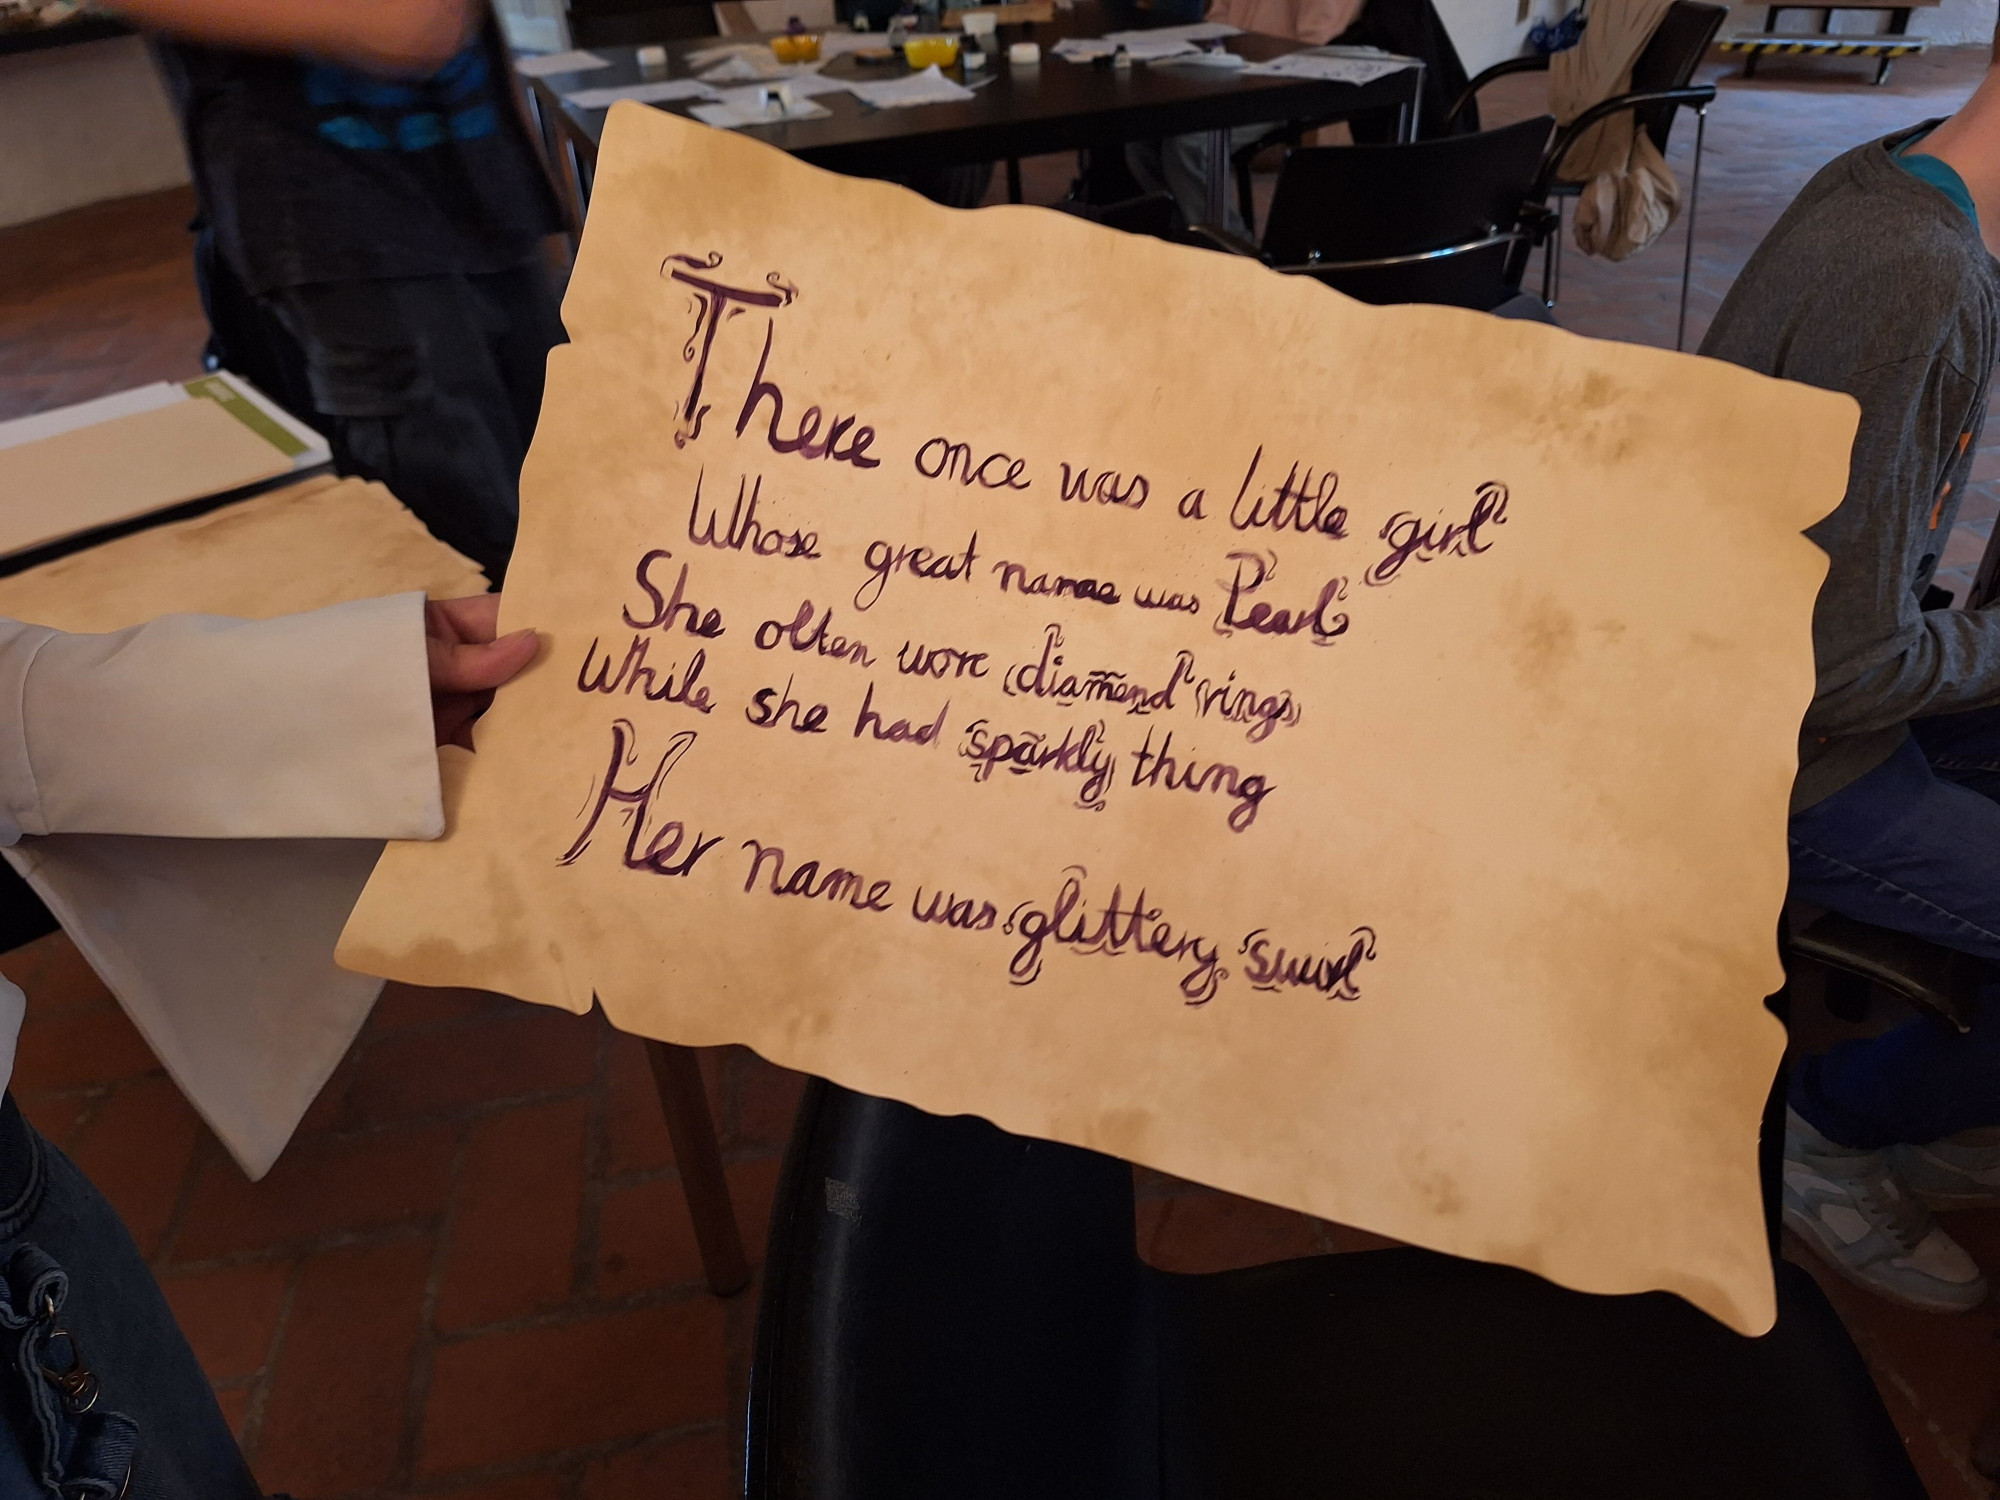 There once was a little girl
Whose great name was Pearl
She often wore diamend rings
While she had sparkly thing
Her name was glittery swirl